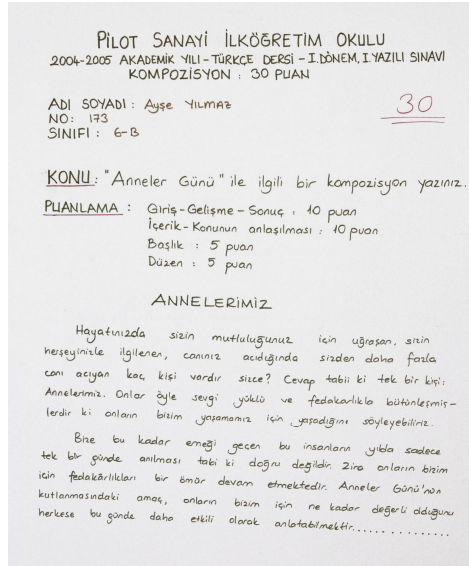 PİLOT SANAYİ İLKÖĞRETİM OKULU
2004-2005 AKADEMİK YILI-TÜRKÇE DERSİ-I.DÖNEM, I.YAZILI SINAVI
KOMPOZİSYON : 30 PUAN
ADI SOYADI : Ayşe YILMAZ
30
NO: 173
SINIFI : 6-B
KONU : "Anneler Günü" ile ilgili bir kompozisyon yazınız.
PUANLAMA : Giriş-Gelişme-Sonuç : 10 puan
İçerik-Konunun anlaşılması : 10 puan
Başlık : 5 puan
Düzen : 5 puan
ANNELERİMİZ
Hayatınızda sizin mutluluğunuz için uğraşan, sizin
herşeyinizle ilgilenen, canınız acıdığında sizden daha fazla
canı acıyan kaç kişi vardır sizce? Cevap tabii ki tek bir kişi:
Annelerimiz. Onlar öyle sevgi yüklü ve fedakarlıkla bütünleşmiş-
lerdir ki onların bizim yaşamamız için yaşadığını söyleyebiliriz.
Bize bu kadar emeği geçen bu insanların yılda sadece
tek bir günde anılması tabi ki doğru değildir. Zira onların bizim
için fedakârlıkları bir ömür devam etmektedir. Anneler Günü'nün
kutlanmasındaki amaç, onların bizim için ne kadar değerli olduğunu
herkese bu günde daha etkili olarak anlatabilmektir..............